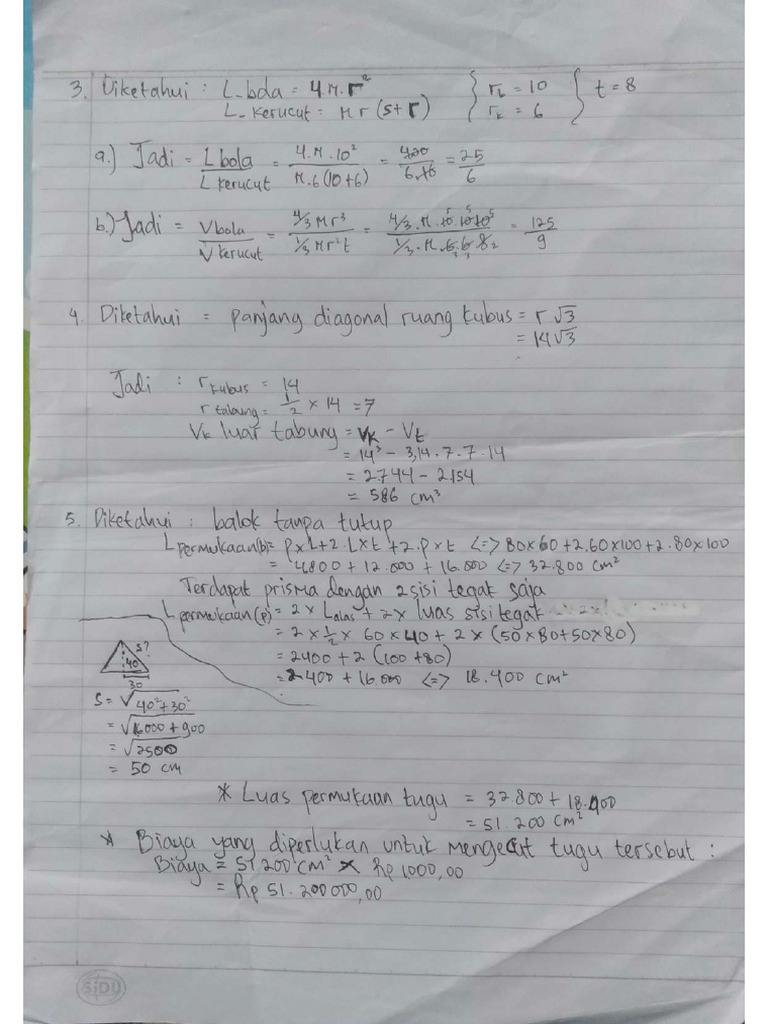 3. Diketahui : L_bola = 4.π.r²
L_kerucut = π r (s+r)
{ r_b = 10
r_k = 6 { t = 8
a.) Jadi = L bola / L kerucut = 4.π.10² / π.6(10+6) = 400 / 6.16 = 25 / 6
b.) Jadi = V bola / V kerucut = 4/3 π r³ / 1/3 π r² t = 4/3 . π . 10 . 10 . 10 / 1/3 . π . 6 . 6 . 8 = 125 / 9
4. Diketahui = panjang diagonal ruang kubus = r √3
= 14√3
Jadi : r kubus = 14
r tabung = 1/2 × 14 = 7
Vk luar tabung = Vk - Vt
= 14³ - 3,14 . 7 . 7 . 14
= 2.744 - 2.154
= 586 cm³
5. Diketahui : balok tanpa tutup
L permukaan(b) = p×L+2.L×t+2.p×t <=> 80×60+2.60×100+2.80×100
= 4800 + 12.000 + 16.000 <=> 32.800 cm²
Terdapat prisma dengan 2 sisi tegak saja
L permukaan(p) = 2 × L alas + 2 × luas sisi tegak
= 2 × 1/2 × 60 × 40 + 2 × (50×80+50×80)
= 2400 + 2 (100+80)
= 2400 + 16.000 <=> 18.400 cm²
s?
40
30
S = √40²+30²
= √1600+900
= √2500
= 50 cm
* Luas permukaan tugu = 32.800 + 18.400
= 51.200 cm²
* Biaya yang diperlukan untuk mengecat tugu tersebut :
Biaya = 51 200 cm² × Rp 1000,00
= Rp 51. 200 000,00
SiDU